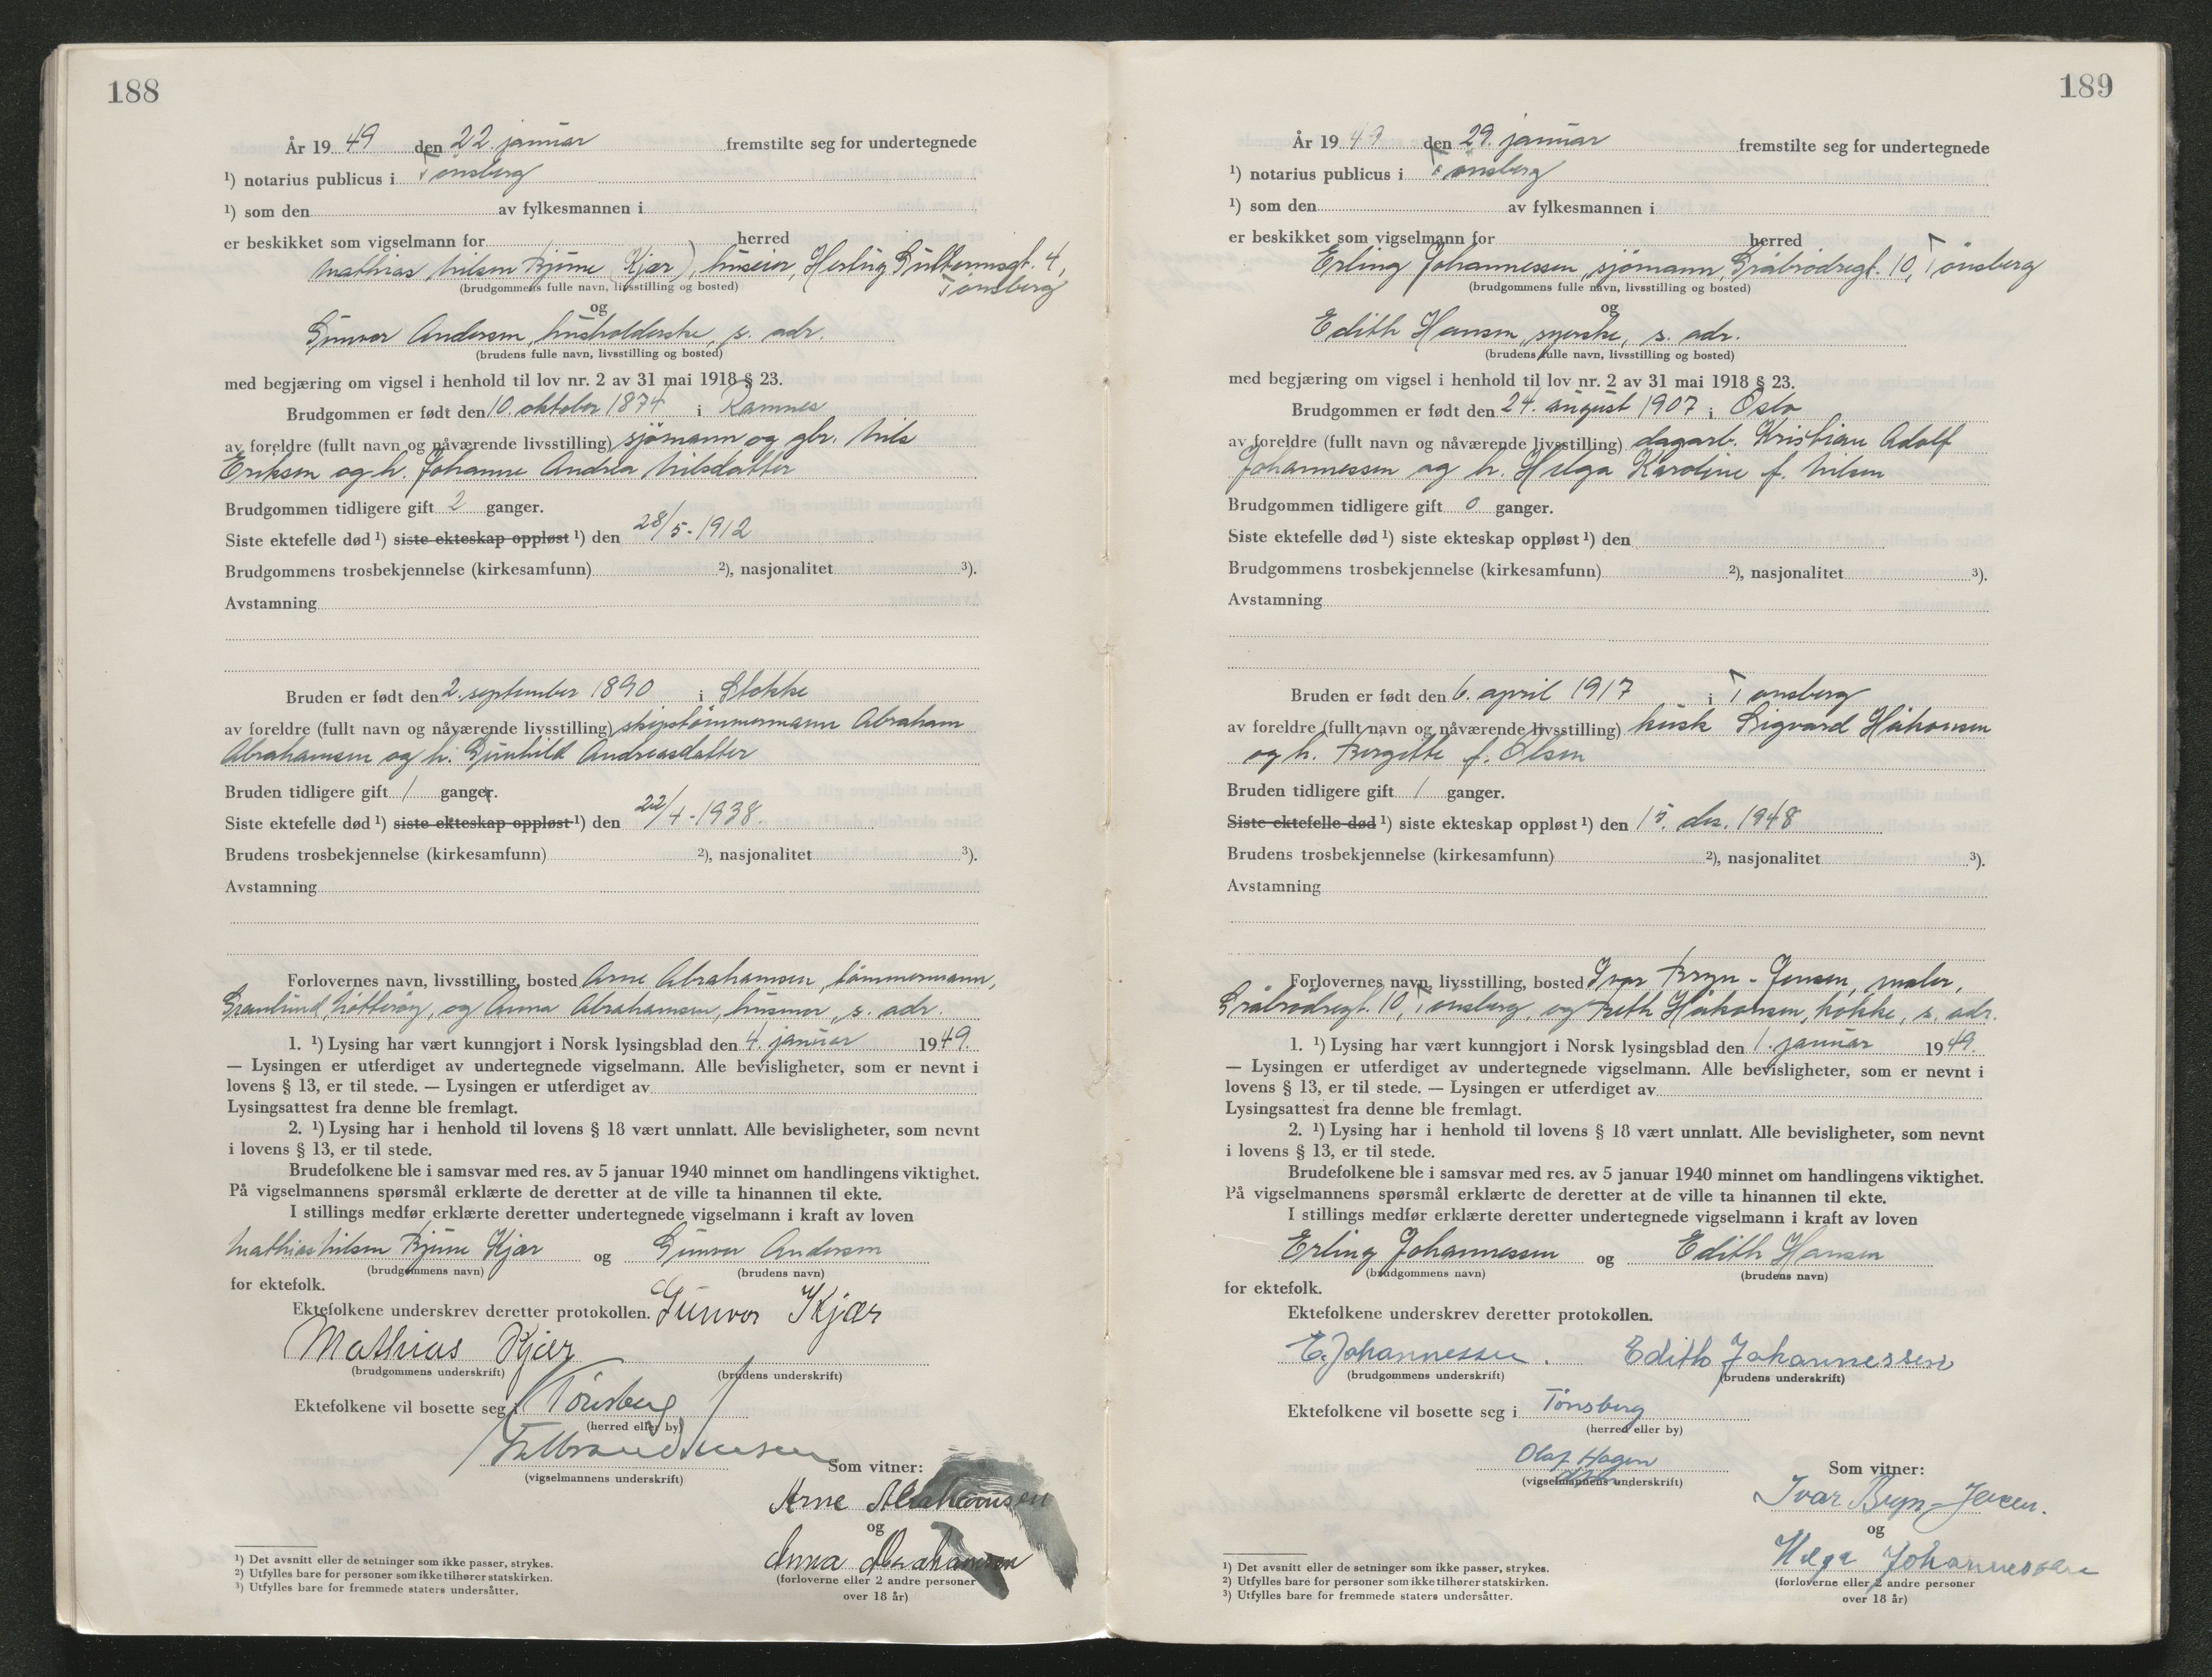 188
År 19 49 den 22. januar fremstilte seg for undertegnede
¹) notarius publicus i Tønsberg
¹) som den av fylkesmannen i
er beskikket som vigselmann for herred
Mathias Nilsen Bjune (Kjær), huseier, Hertug Guttormsgt. 4,
Tønsberg
(brudgommens fulle navn, livsstilling og bosted)
og
Gunvor Andersen, husholderske, s. adr.
(brudens fulle navn, livsstilling og bosted)
med begjæring om vigsel i henhold til lov nr. 2 av 31 mai 1918 § 23.
Brudgommen er født den 10. oktober 1874 i Ramnes
av foreldre (fullt navn og nåværende livsstilling) sjømann og gbr. Nils
Eriksen og h. Johanne Andrea Nilsdatter
Brudgommen tidligere gift 2 ganger.
Siste ektefelle død ¹) siste ekteskap oppløst ¹) den 28/5-1912
Brudgommens trosbekjennelse (kirkesamfunn) ²), nasjonalitet ³).
Avstamning
Bruden er født den 2. september 1890 i Stokke
av foreldre (fullt navn og nåværende livsstilling) skipstømmermann Abraham
Abrahamsen og h. Gunhild Andreasdatter
Bruden tidligere gift 1 ganger.
Siste ektefelle død ¹) siste ekteskap oppløst ¹) den 22/4-1938.
Brudens trosbekjennelse (kirkesamfunn) ²), nasjonalitet ³).
Avstamning
Forlovernes navn, livsstilling, bosted Arne Abrahamsen, tømmermann,
Nøtterøy, og Anna Abrahamsen, husmor, s. adr.
1. ¹) Lysing har vært kunngjort i Norsk lysingsblad den 4. januar 1949.
— Lysingen er utferdiget av undertegnede vigselmann. Alle bevisligheter, som er nevnt i
lovens § 13, er til stede. — Lysingen er utferdiget av
Lysingsattest fra denne ble fremlagt.
2. ¹) Lysing har i henhold til lovens § 18 vært unnlatt. Alle bevisligheter, som nevnt
i lovens § 13, er til stede.
Brudefolkene ble i samsvar med res. av 5 januar 1940 minnet om handlingens viktighet.
På vigselmannens spørsmål erklærte de deretter at de ville ta hinannen til ekte.
I stillings medfør erklærte deretter undertegnede vigselmann i kraft av loven
Mathias Nilsen Bjune Kjær og Gunvor Andersen
(brudgommens navn) (brudens navn)
for ektefolk.
Ektefolkene underskrev deretter protokollen. Gunvor Kjær
Mathias Kjær
(brudgommens underskrift) (brudens underskrift)
Ektefolkene vil bosette seg i Tønsberg
(herred eller by)
(vigselmannens underskrift)
Som vitner:
Arne Abrahamsen
og
Anna Abrahamsen
(forloverne eller 2 andre personer
over 18 år)
¹) Det avsnitt eller de setninger som ikke passer, strykes.
²) Utfylles bare for personer som ikke tilhører statskirken.
³) Utfylles bare for fremmede staters undersåtter.
189
År 19 49 den 29. januar fremstilte seg for undertegnede
¹) notarius publicus i Tønsberg
¹) som den av fylkesmannen i
er beskikket som vigselmann for herred
Erling Johannessen, sjømann, Gråbrødregt. 10, Tønsberg
(brudgommens fulle navn, livsstilling og bosted)
og
Edith Hansen, syerske, s. adr.
(brudens fulle navn, livsstilling og bosted)
med begjæring om vigsel i henhold til lov nr. 2 av 31 mai 1918 § 23.
Brudgommen er født den 24. august 1907 i Oslo
av foreldre (fullt navn og nåværende livsstilling) dagarb. Kristian Adolf
Johannessen og h. Helga Karoline f. Nilsen
Brudgommen tidligere gift 0 ganger.
Siste ektefelle død ¹) siste ekteskap oppløst ¹) den
Brudgommens trosbekjennelse (kirkesamfunn) ²), nasjonalitet ³).
Avstamning
Bruden er født den 6. april 1917 i Tønsberg
av foreldre (fullt navn og nåværende livsstilling) kusk Sigvard Håkonsen
og h. Bergitte f. Olsen
Bruden tidligere gift 1 ganger.
Siste ektefelle død ¹) siste ekteskap oppløst ¹) den 15. des. 1948
Brudens trosbekjennelse (kirkesamfunn) ²), nasjonalitet ³).
Avstamning
Forlovernes navn, livsstilling, bosted Ivar Bryn-Jensen, maler,
Gråbrødregt. 10, Tønsberg, og Beth Håkonsen, kokke, s. adr.
1. ¹) Lysing har vært kunngjort i Norsk lysingsblad den 1. januar 1949.
— Lysingen er utferdiget av undertegnede vigselmann. Alle bevisligheter, som er nevnt i
lovens § 13, er til stede. — Lysingen er utferdiget av
Lysingsattest fra denne ble fremlagt.
2. ¹) Lysing har i henhold til lovens § 18 vært unnlatt. Alle bevisligheter, som nevnt
i lovens § 13, er til stede.
Brudefolkene ble i samsvar med res. av 5 januar 1940 minnet om handlingens viktighet.
På vigselmannens spørsmål erklærte de deretter at de ville ta hinannen til ekte.
I stillings medfør erklærte deretter undertegnede vigselmann i kraft av loven
Erling Johannessen og Edith Hansen
(brudgommens navn) (brudens navn)
for ektefolk.
Ektefolkene underskrev deretter protokollen.
E. Johannessen. Edith Johannessen
(brudgommens underskrift) (brudens underskrift)
Ektefolkene vil bosette seg i Tønsberg
(herred eller by)
Olaf Hagen
(vigselmannens underskrift)
Som vitner:
Ivar Bryn-Jensen.
og
Helga Johannessen
(forloverne eller 2 andre personer
over 18 år)
¹) Det avsnitt eller de setninger som ikke passer, strykes.
²) Utfylles bare for personer som ikke tilhører statskirken.
³) Utfylles bare for fremmede staters undersåtter.